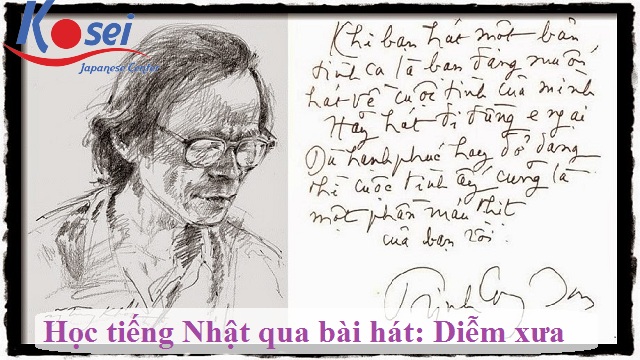 Kosei
Japanese Center
Khi bạn hát một bản
tình ca là bạn đang muốn
hát về cuộc tình của mình
Hãy hát đi đừng e ngại
Dù hạnh phúc hay dở dang
thì cuộc tình ấy cũng là
một phần máu thịt
của bạn rồi.
Trịnh Công Sơn
Học tiếng Nhật qua bài hát: Diễm xưa